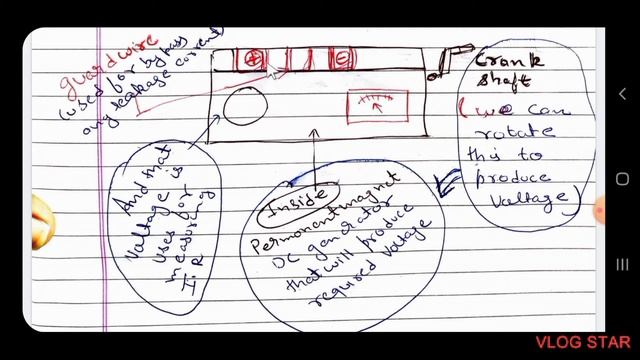 guard wire
(used for bypass
any leakage current)
+
-
Crank
shaft
(we can
rotate
this to
produce
voltage)
And that
voltage is
uses for
measuring
I.R
Inside
Permanent magnet
DC generator
that will produce
required voltage
VLOG STAR